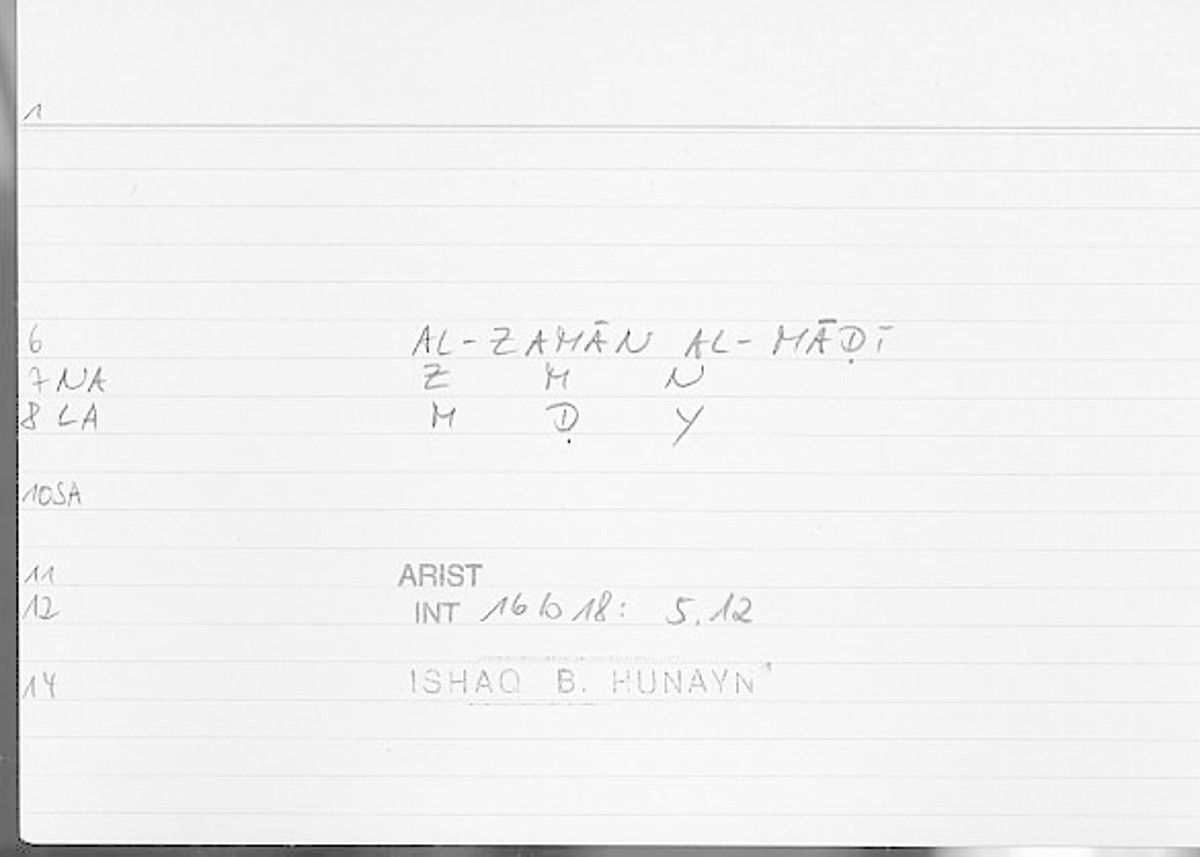 1
6 AL-ZAMĀN AL-MĀḌĪ
7 NA Z M N
8 LA M Ḍ Y
10SA
11 ARIST
12 INT 16 b 18: 5.12
14 ISHAQ B. HUNAYN